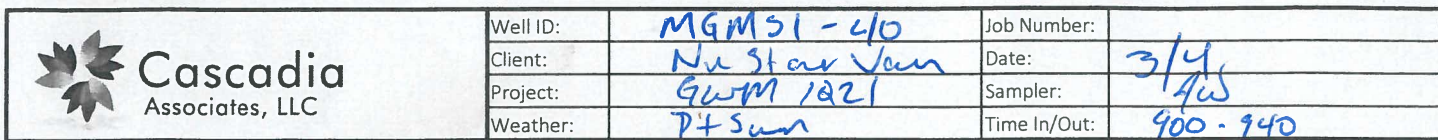 Cascadia
Associates, LLC
Well ID: MGMS1-40 Job Number:
Client: NuStar Van Date: 3/4
Project: GWM 1Q21 Sampler: AW
Weather: Pt Sun Time In/Out: 900 - 940